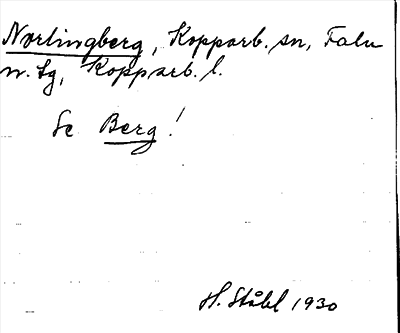 Norlingberg, Kopparb. sn, Falu
n. tg, Kopparb. l.
Se Berg!
H. Ståhl 1930